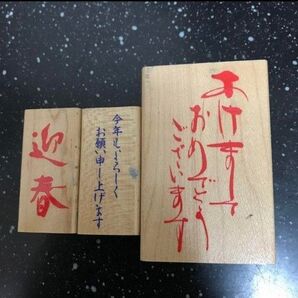 迎春
今年もよろしく
お願い申し上げます
あけまして
おめでとう
ございます